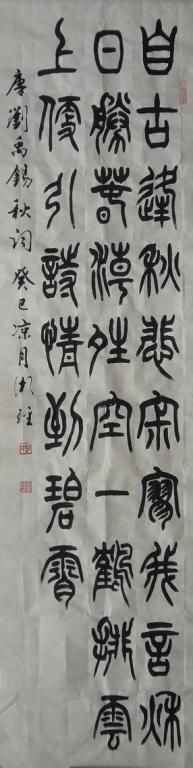 自古逢秋悲寂寥我言秋
日勝春潮晴空一鶴排雲
上便引詩情到碧霄
唐劉禹錫秋词 癸巳凉月